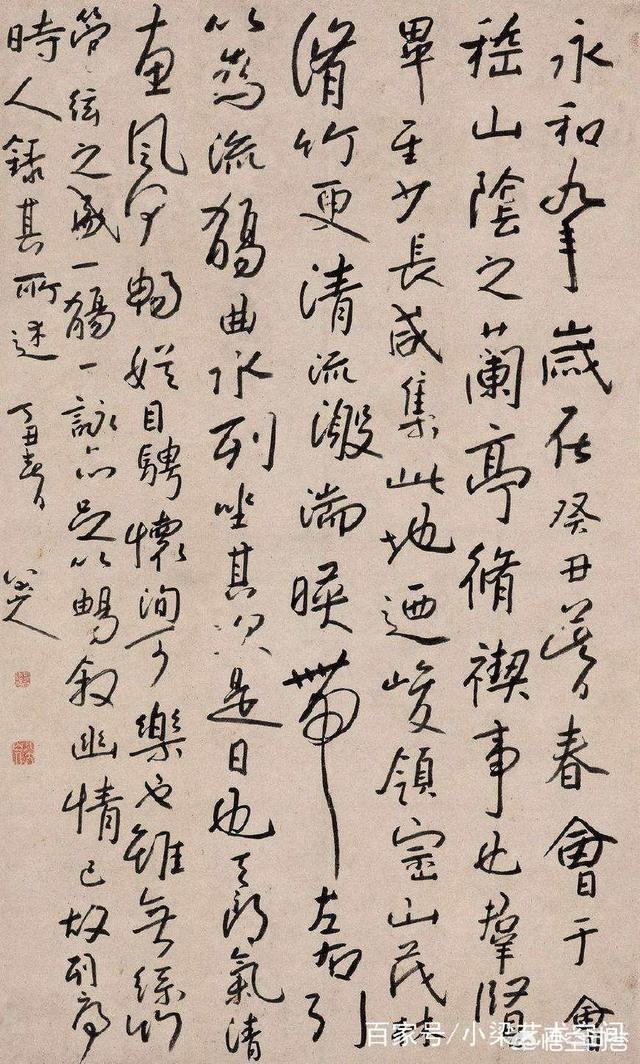 永和九年歲在癸丑暮春會于會
稽山陰之蘭亭脩禊事也羣賢
畢至少長咸集此地迺峻領崇山茂林
脩竹更清流激湍暎帶左右引
以為流觴曲水列坐其次是日也天朗氣清
惠風和暢娛目騁懷洵可樂也雖無絲竹
管絃之盛一觴一詠亦足以暢敘幽情已故列序
時人錄其所述 丁丑春日 八大山人
百家号/小梁艺术空间
悟空问答